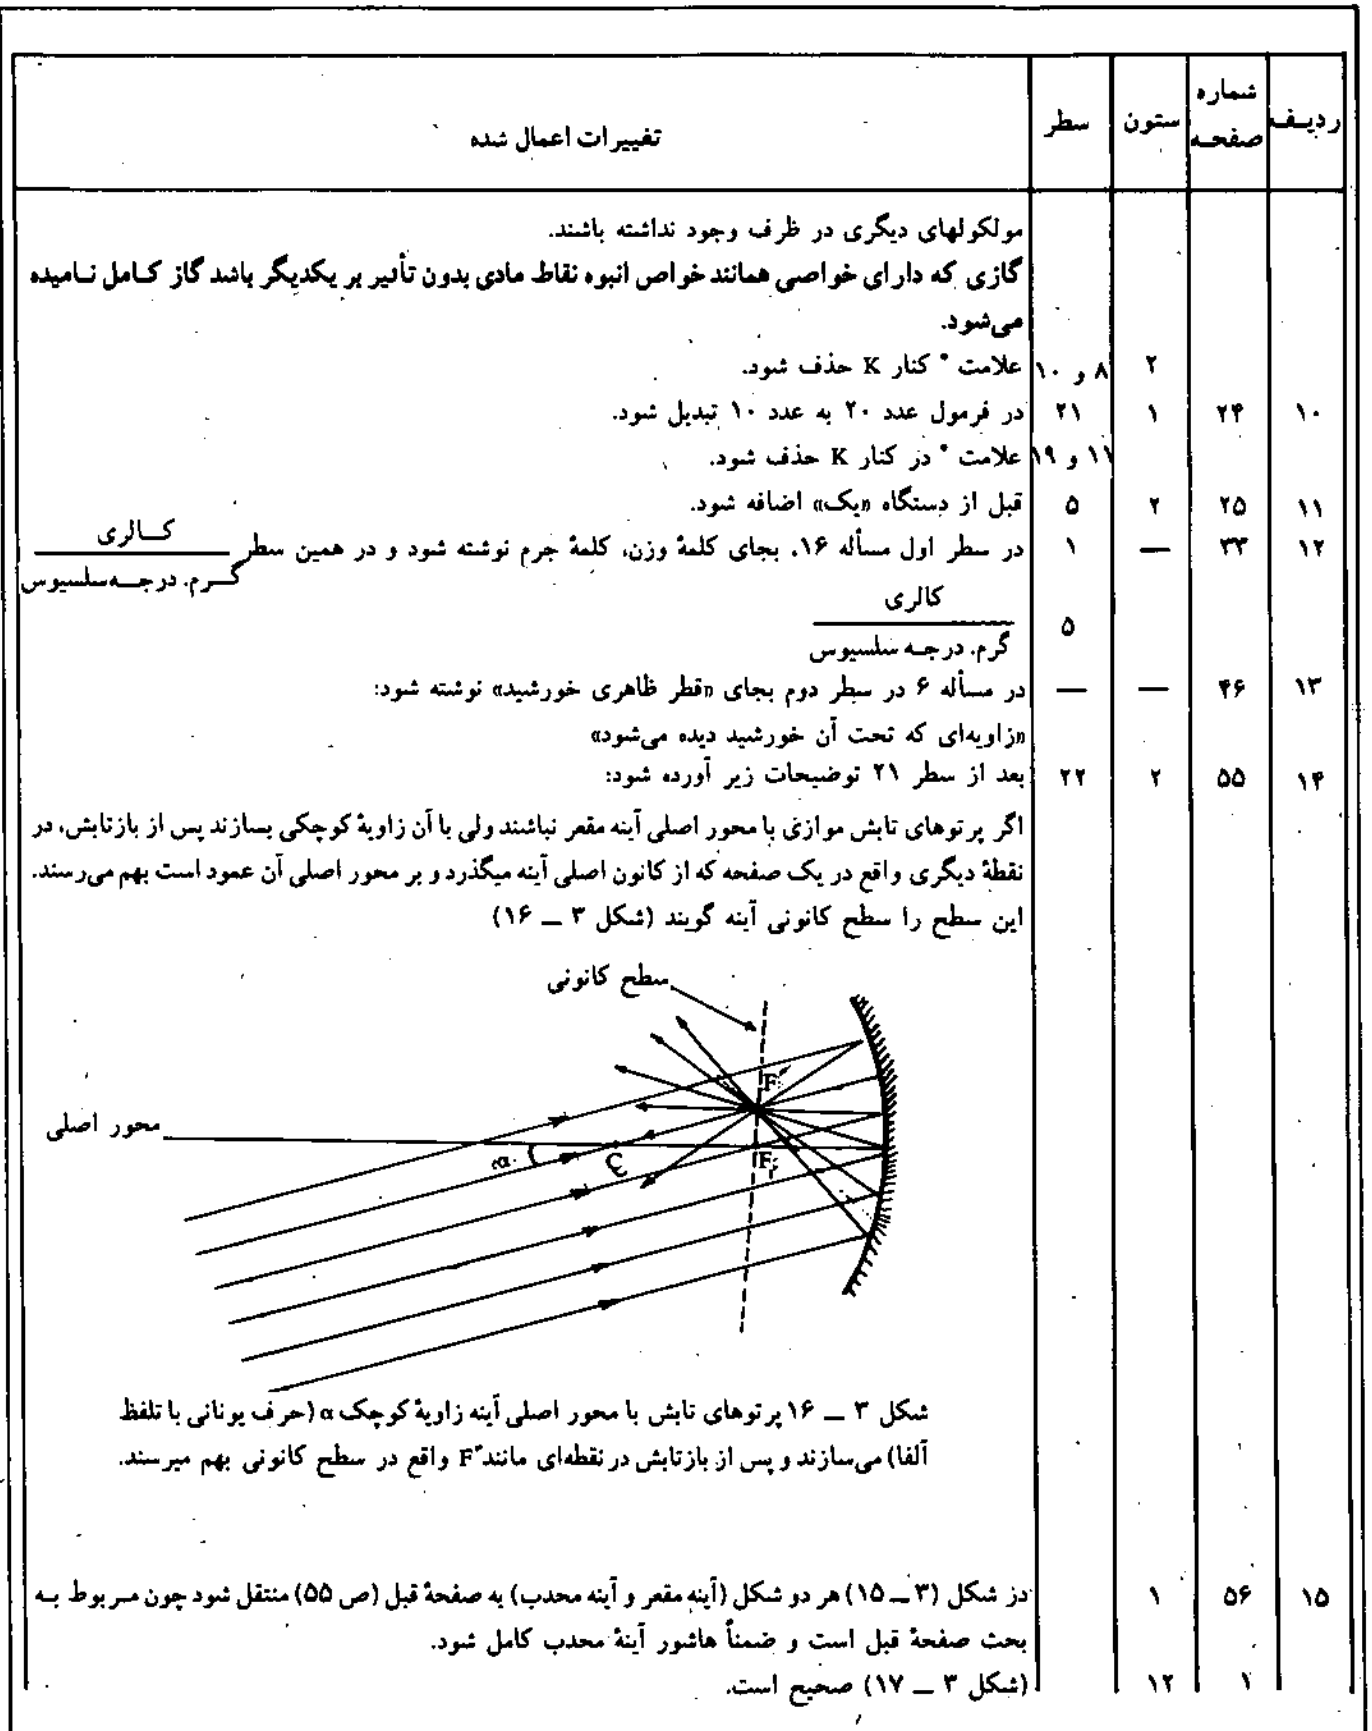 ردیف شماره صفحه ستون سطر تغییرات اعمال شده
مولکولهای دیگری در ظرف وجود نداشته باشند.
گازی که دارای خواصی همانند خواص انبوه نقاط مادی بدون تأثیر بر یکدیگر باشد گاز کامل نامیده
می‌شود.
۲ ۸ و ۱۰ علامت ° کنار K حذف شود.
۱۰ ۲۴ ۱ ۲۱ در فرمول عدد ۲۰ به عدد ۱۰ تبدیل شود.
۱۱ و ۱۹ علامت ° در کنار K حذف شود.
۱۱ ۲۵ ۲ ۵ قبل از دستگاه «یک» اضافه شود.
۱۲ ۳۳ — ۱ در سطر اول مسأله ۱۶، بجای کلمهٔ وزن، کلمهٔ جرم نوشته شود و در همین سطر کالری
گرم. درجه سلسیوس
کالری
۵
گرم. درجه سلسیوس
۱۳ ۴۶ — — در مسأله ۶ در سطر دوم بجای «قطر ظاهری خورشید» نوشته شود:
«زاویه‌ای که تحت آن خورشید دیده می‌شود»
۱۴ ۵۵ ۲ ۲۲ بعد از سطر ۲۱ توضیحات زیر آورده شود:
اگر پرتوهای تابش موازی با محور اصلی آینه مقعر نباشند ولی با آن زاویهٔ کوچکی بسازند پس از بازتابش، در
نقطهٔ دیگری واقع در یک صفحه که از کانون اصلی آینه میگذرد و بر محور اصلی آن عمود است بهم می‌رسند.
این سطح را سطح کانونی آینه گویند (شکل ۳ ــ ۱۶)
سطح کانونی
F′
محور اصلی
α
C
F
شکل ۳ ــ ۱۶ پرتوهای تابش با محور اصلی آینه زاویهٔ کوچک α (حرف یونانی با تلفظ
آلفا) می‌سازند و پس از بازتابش در نقطه‌ای مانند F′ واقع در سطح کانونی بهم میرسند.
۱۵ ۵۶ ۱ در شکل (۳ ــ ۱۵) هر دو شکل (آینه مقعر و آینه محدب) به صفحهٔ قبل (ص ۵۵) منتقل شود چون مربوط به
بحث صفحهٔ قبل است و ضمناً هاشور آینهٔ محدب کامل شود.
۱ ۱۲ (شکل ۳ ــ ۱۷) صحیح است.